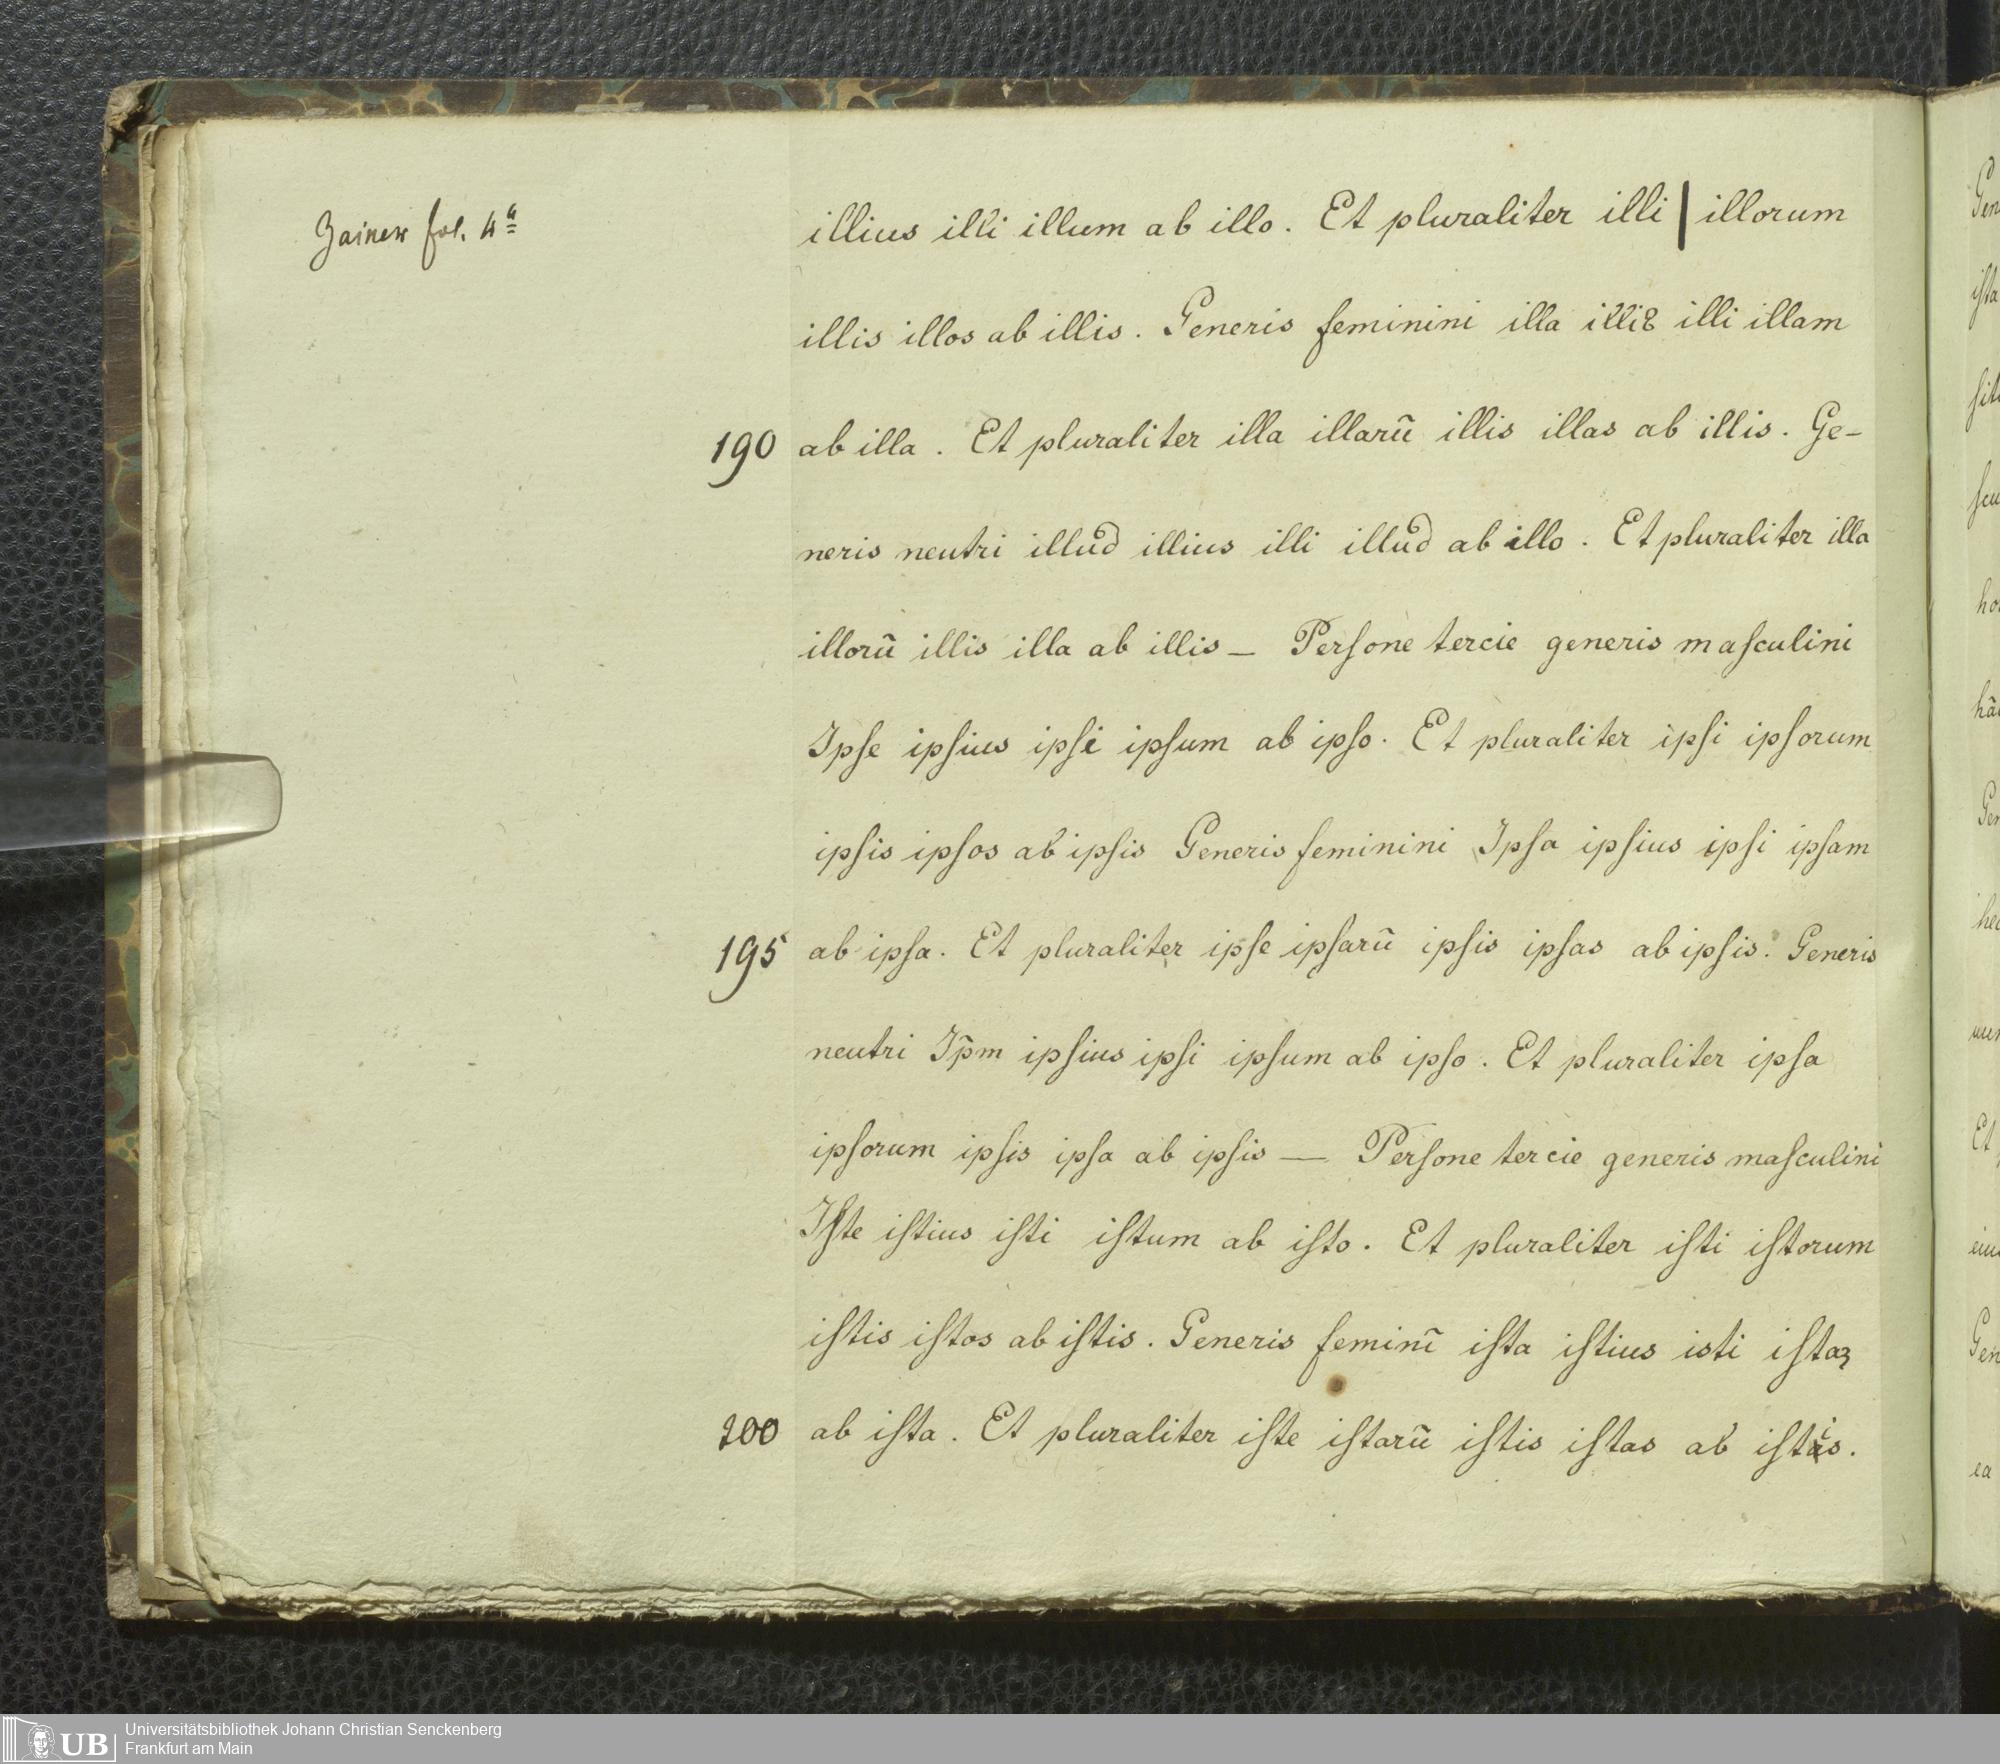 Zainer fol. 4ª
illius illi illum ab illo. Et pluraliter illi | illorum
illis illos ab illis. Generis feminini illa illiꝰ illi illam
190 ab illa. Et pluraliter illa illarū illis illas ab illis. Ge-
neris neutri illud illius illi illud ab illo. Et pluraliter illa
illorū illis illa ab illis – Perſone tercie generis maſculini
Ipſe ipſius ipſi ipſum ab ipſo. Et pluraliter ipſi ipſorum
ipſis ipſos ab ipſis Generis feminini Ipſa ipſius ipſi ipſam
195 ab ipſa. Et pluraliter ipſe ipſarū ipſis ipſas ab ipſis. Generis
neutri Ip̄m ipſius ipſi ipſum ab ipſo. Et pluraliter ipſa
ipſorum ipſis ipſa ab ipſis — Perſone tercie generis maſculini
Iſte iſtius iſti iſtum ab iſto. Et pluraliter iſti iſtorum
iſtis iſtos ab iſtis. Generis feminī iſta iſtius isti iſtaꝫ
200 ab iſta. Et pluraliter iſte iſtarū iſtis iſtas ab iſtis.
UB
Universitätsbibliothek Johann Christian Senckenberg
Frankfurt am Main